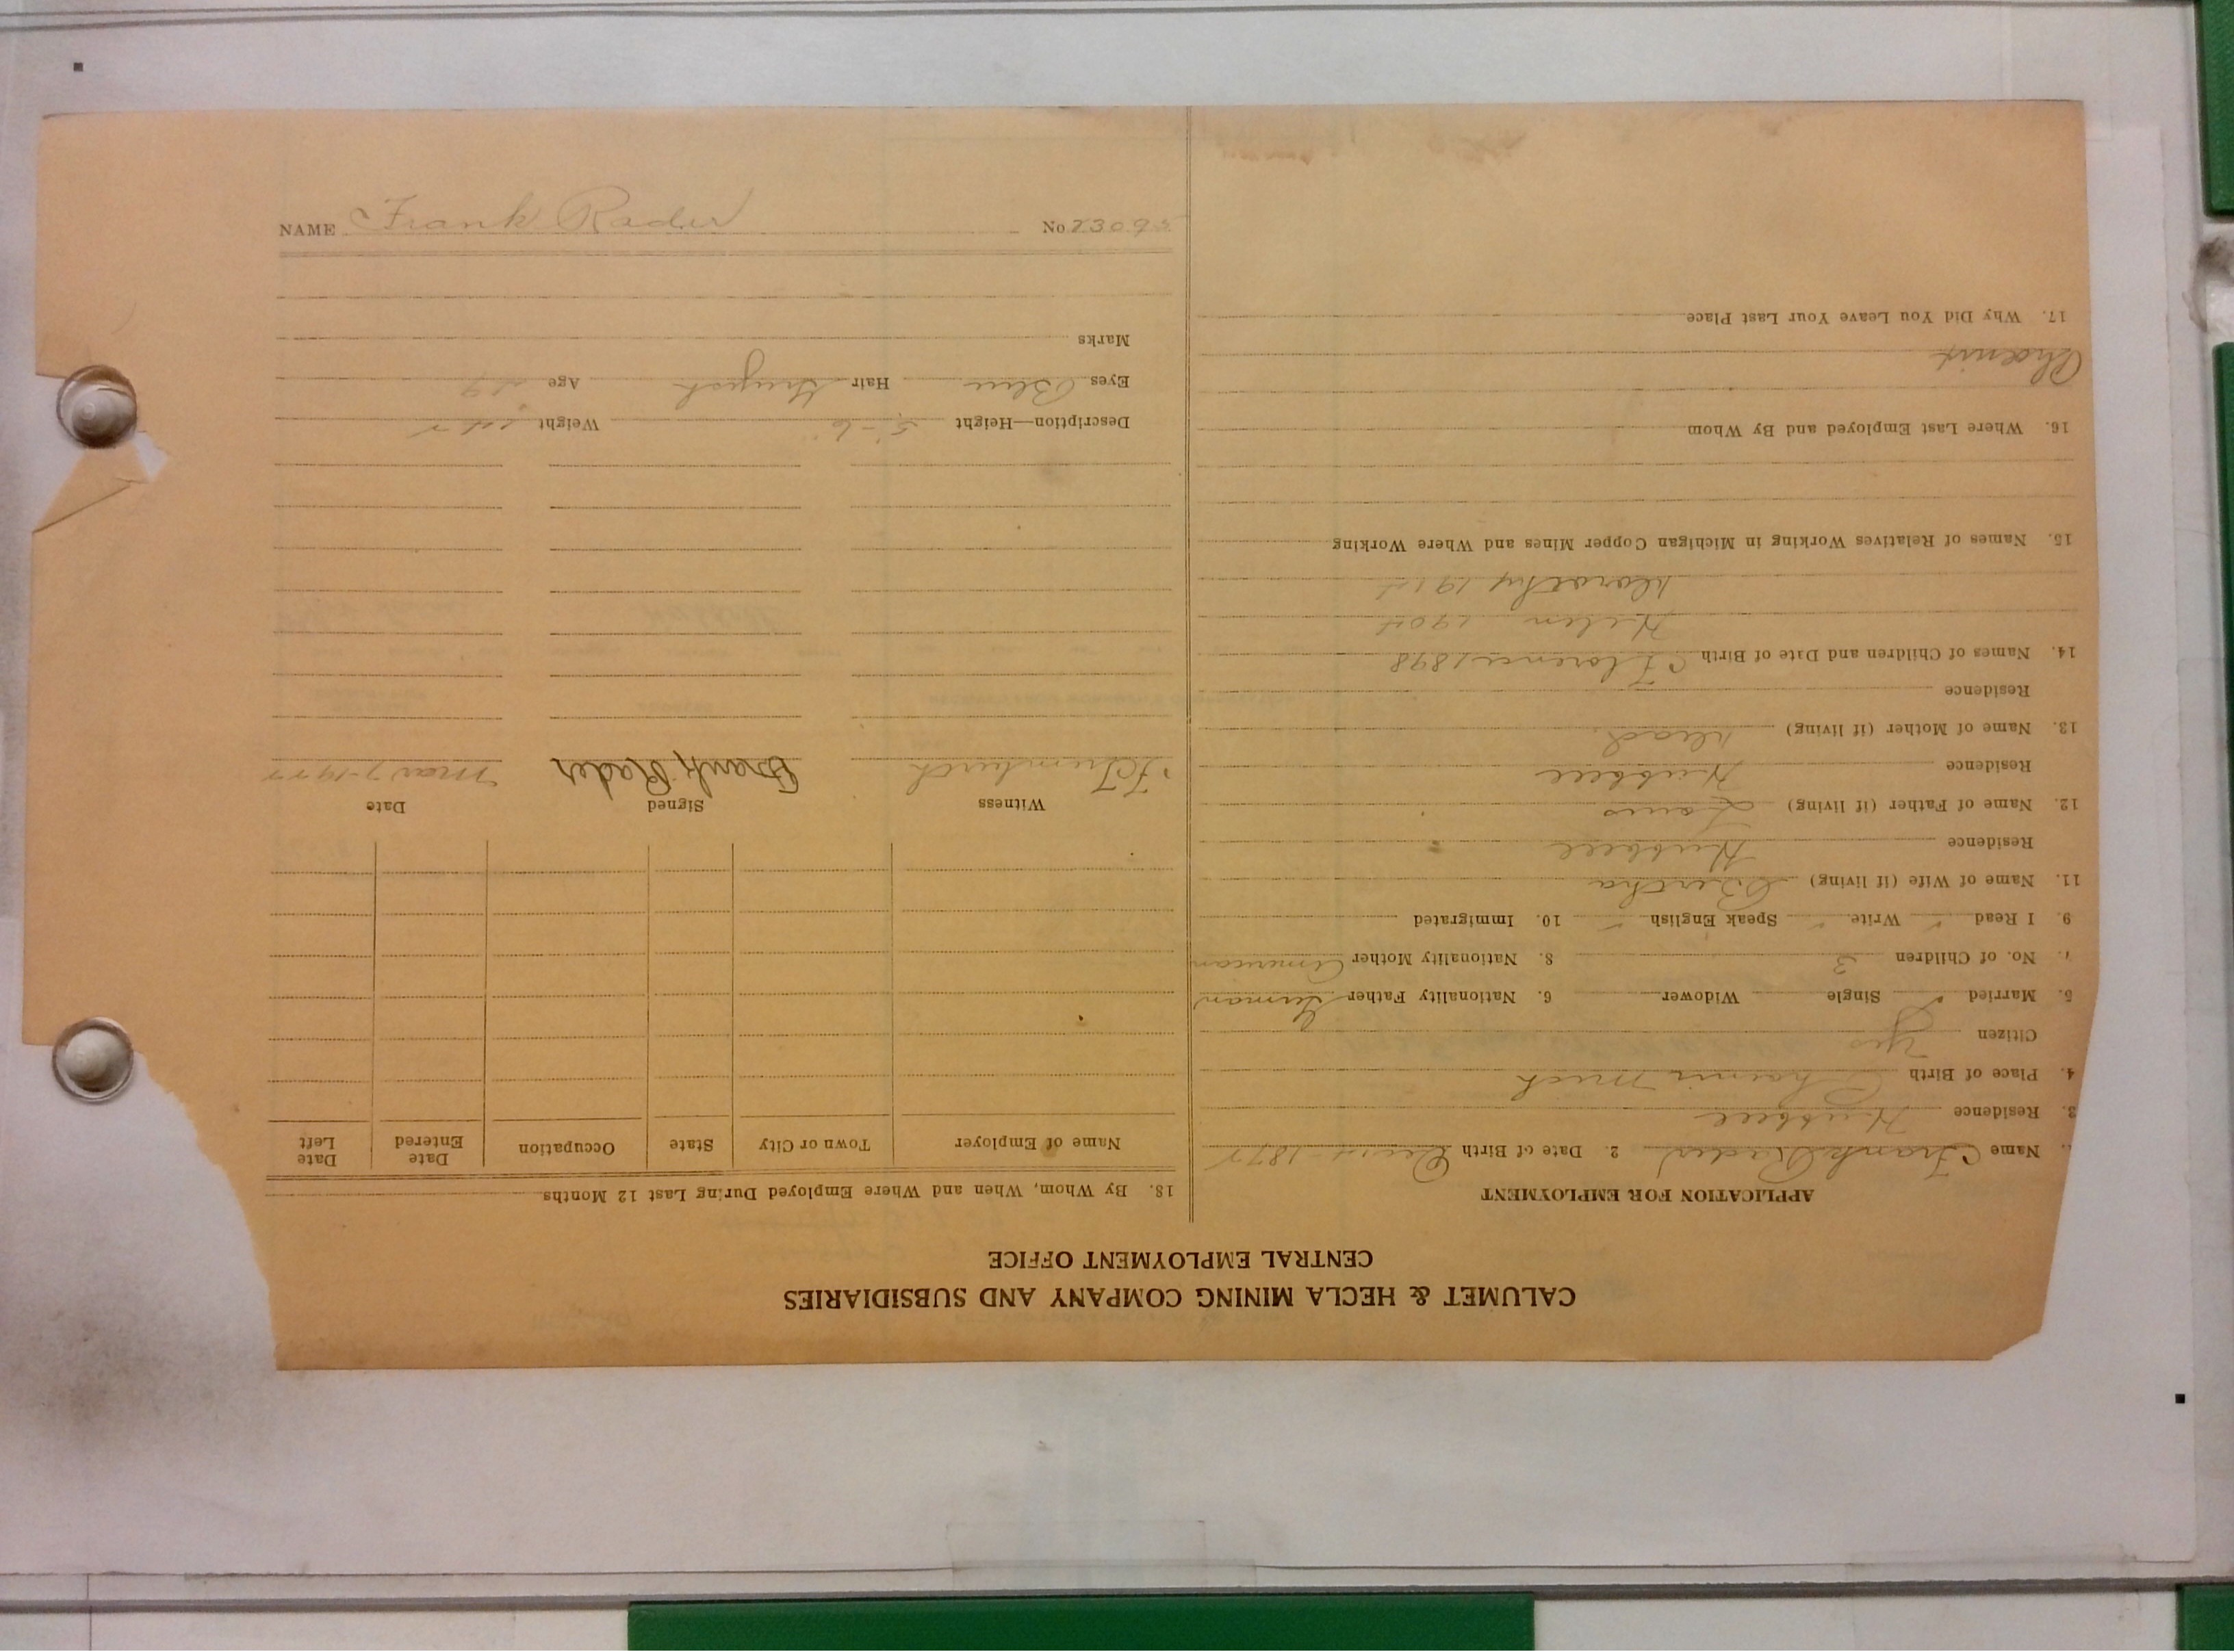 CALUMET & HECLA MINING COMPANY AND SUBSIDIARIES
CENTRAL EMPLOYMENT OFFICE
APPLICATION FOR EMPLOYMENT
Name Frank Rader 2. Date of Birth 1877
3. Residence Hubbell
4. Place of Birth Phoenix Mich
Citizen Yes
5. Married ✓ Single Widower 6. Nationality Father German
7. No. of Children 3 8. Nationality Mother American
9. I Read ✓ Write ✓ Speak English ✓ 10. Immigrated
11. Name of Wife (if living) Bertha
Residence Hubbell
12. Name of Father (if living) Louis
Residence Hubbell
13. Name of Mother (if living) Dead
Residence
14. Names of Children and Date of Birth Florence 1898
Helen 1904
Dorothy 1914
15. Names of Relatives Working in Michigan Copper Mines and Where Working
16. Where Last Employed and By Whom
Phoenix
17. Why Did You Leave Your Last Place
18. By Whom, When and Where Employed During Last 12 Months
Name of Employer Town or City State Occupation Date Entered Date Left
Witness Signed Date
Frank Rader Mar 7-1922
Description—Height 5-6 Weight
Eyes Blue Hair Greyish Age 49
Marks
NAME Frank Rader No 23095